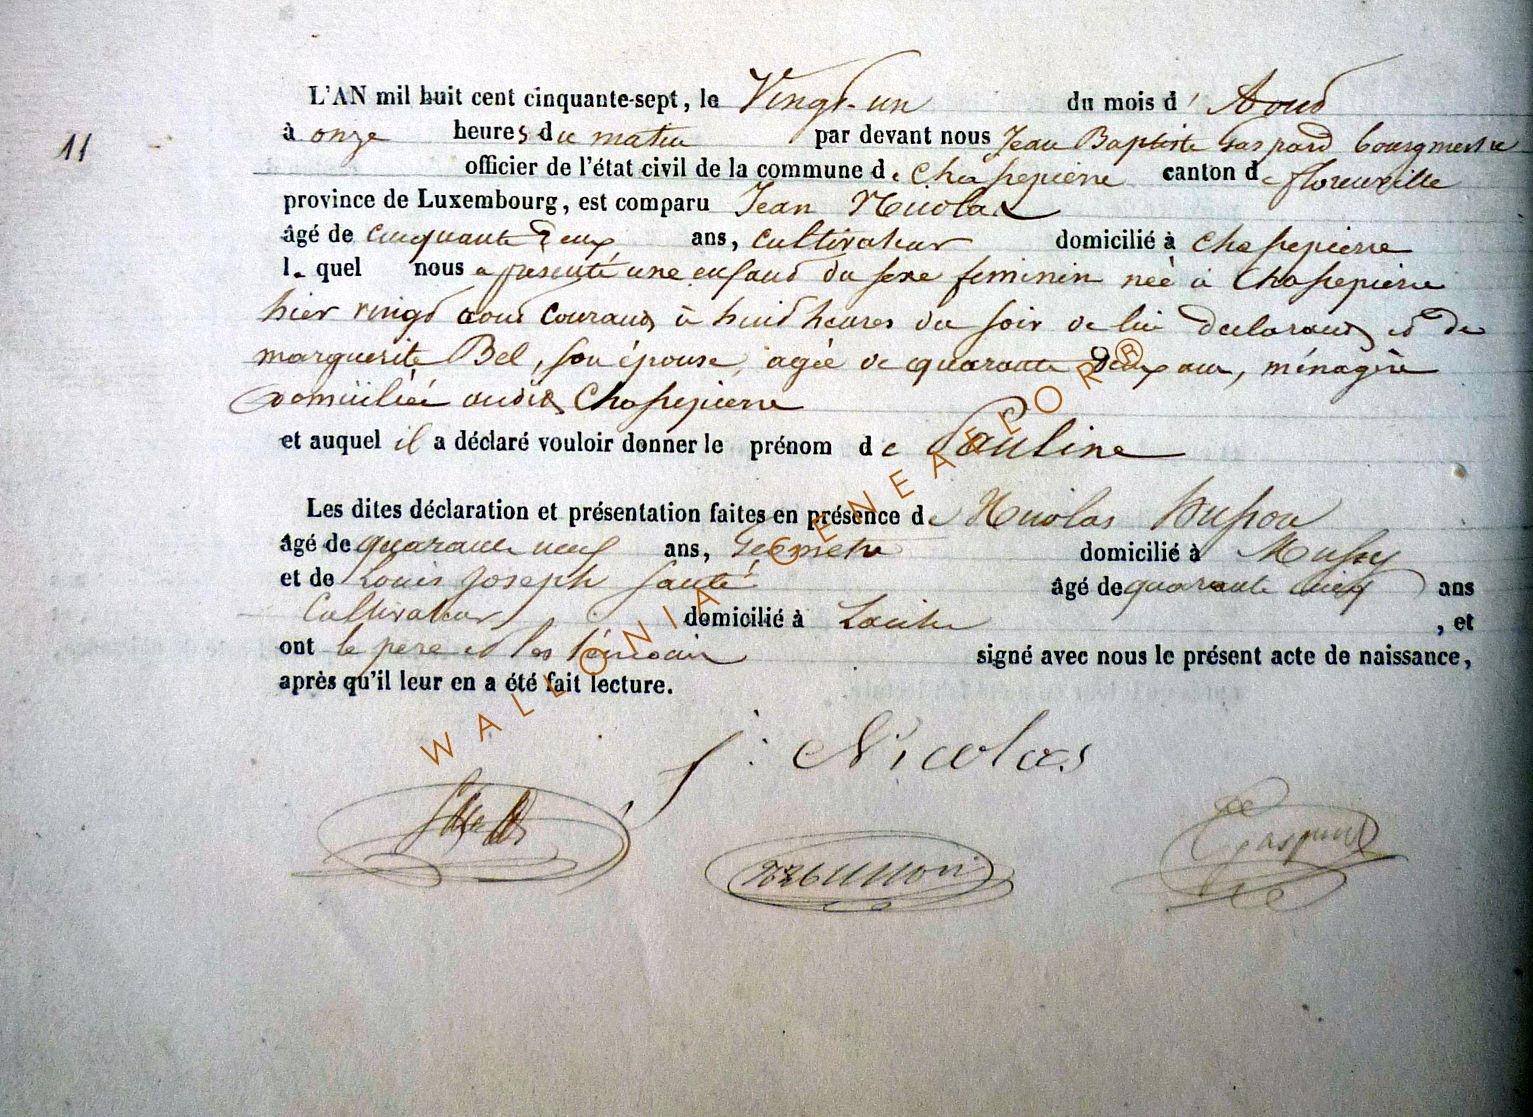 L'AN mil huit cent cinquante-sept, le Vingt-un du mois d' Aout
11
à onze heures du matin par devant nous Jean Baptiste Gaspard bourgmestre
officier de l'état civil de la commune de Chassepierre canton de florenville
province de Luxembourg, est comparu Jean Nicolas
âgé de cinquante deux ans, cultivateur domicilié à Chassepierre
lequel nous a présenté une enfant du sexe feminin née à Chassepierre
hier vingt aout courant à huit heures du soir de lui declarant et de
marguerite Bel, son épouse, agée de quarante deux ans, ménagère
domiciliée audit Chassepierre
et auquel il a déclaré vouloir donner le prénom de Pauline
Les dites déclaration et présentation faites en présence de Nicolas Husson
âgé de quarante neuf ans, Géometre domicilié à Mussy
et de Louis Joseph âgé de quarante ans
Cultivateur domicilié à , et
ont le père et les témoins signé avec nous le présent acte de naissance,
après qu'il leur en a été fait lecture.
J. Nicolas
Husson
Gaspard
WALLONIA GENEAFLOR ®